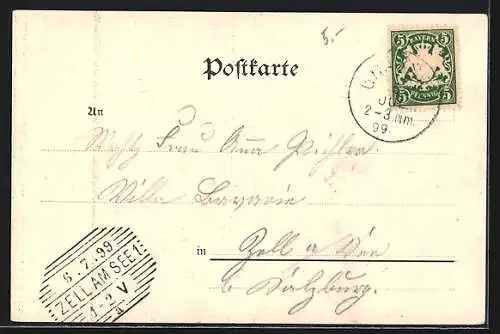 5.-
BAYERN
5 5
5 PFENNIG 5
Postkarte
JU
2-3 Nm.
99.
An
Frau Anna Pichler
Villa Bavaria
in Zell a See
b Salzburg.
6.7.99
ZELL AM SEE 1
1-2 V
a